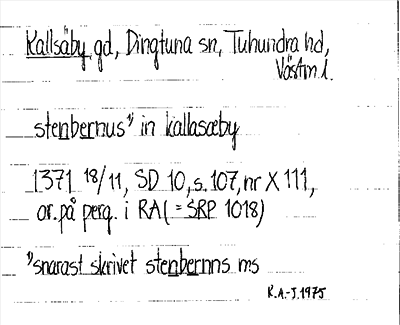 Kallsäby, gd, Dingtuna sn, Tuhundra hd,
Västm l.
stenbernus¹⁾ in kallasæby
1371 18/11, SD 10, s. 107, nr X 111,
or. på perg. i RA (= SRP 1018)
¹⁾snarast skrivet stenbernns ms
K.A.-J. 1975